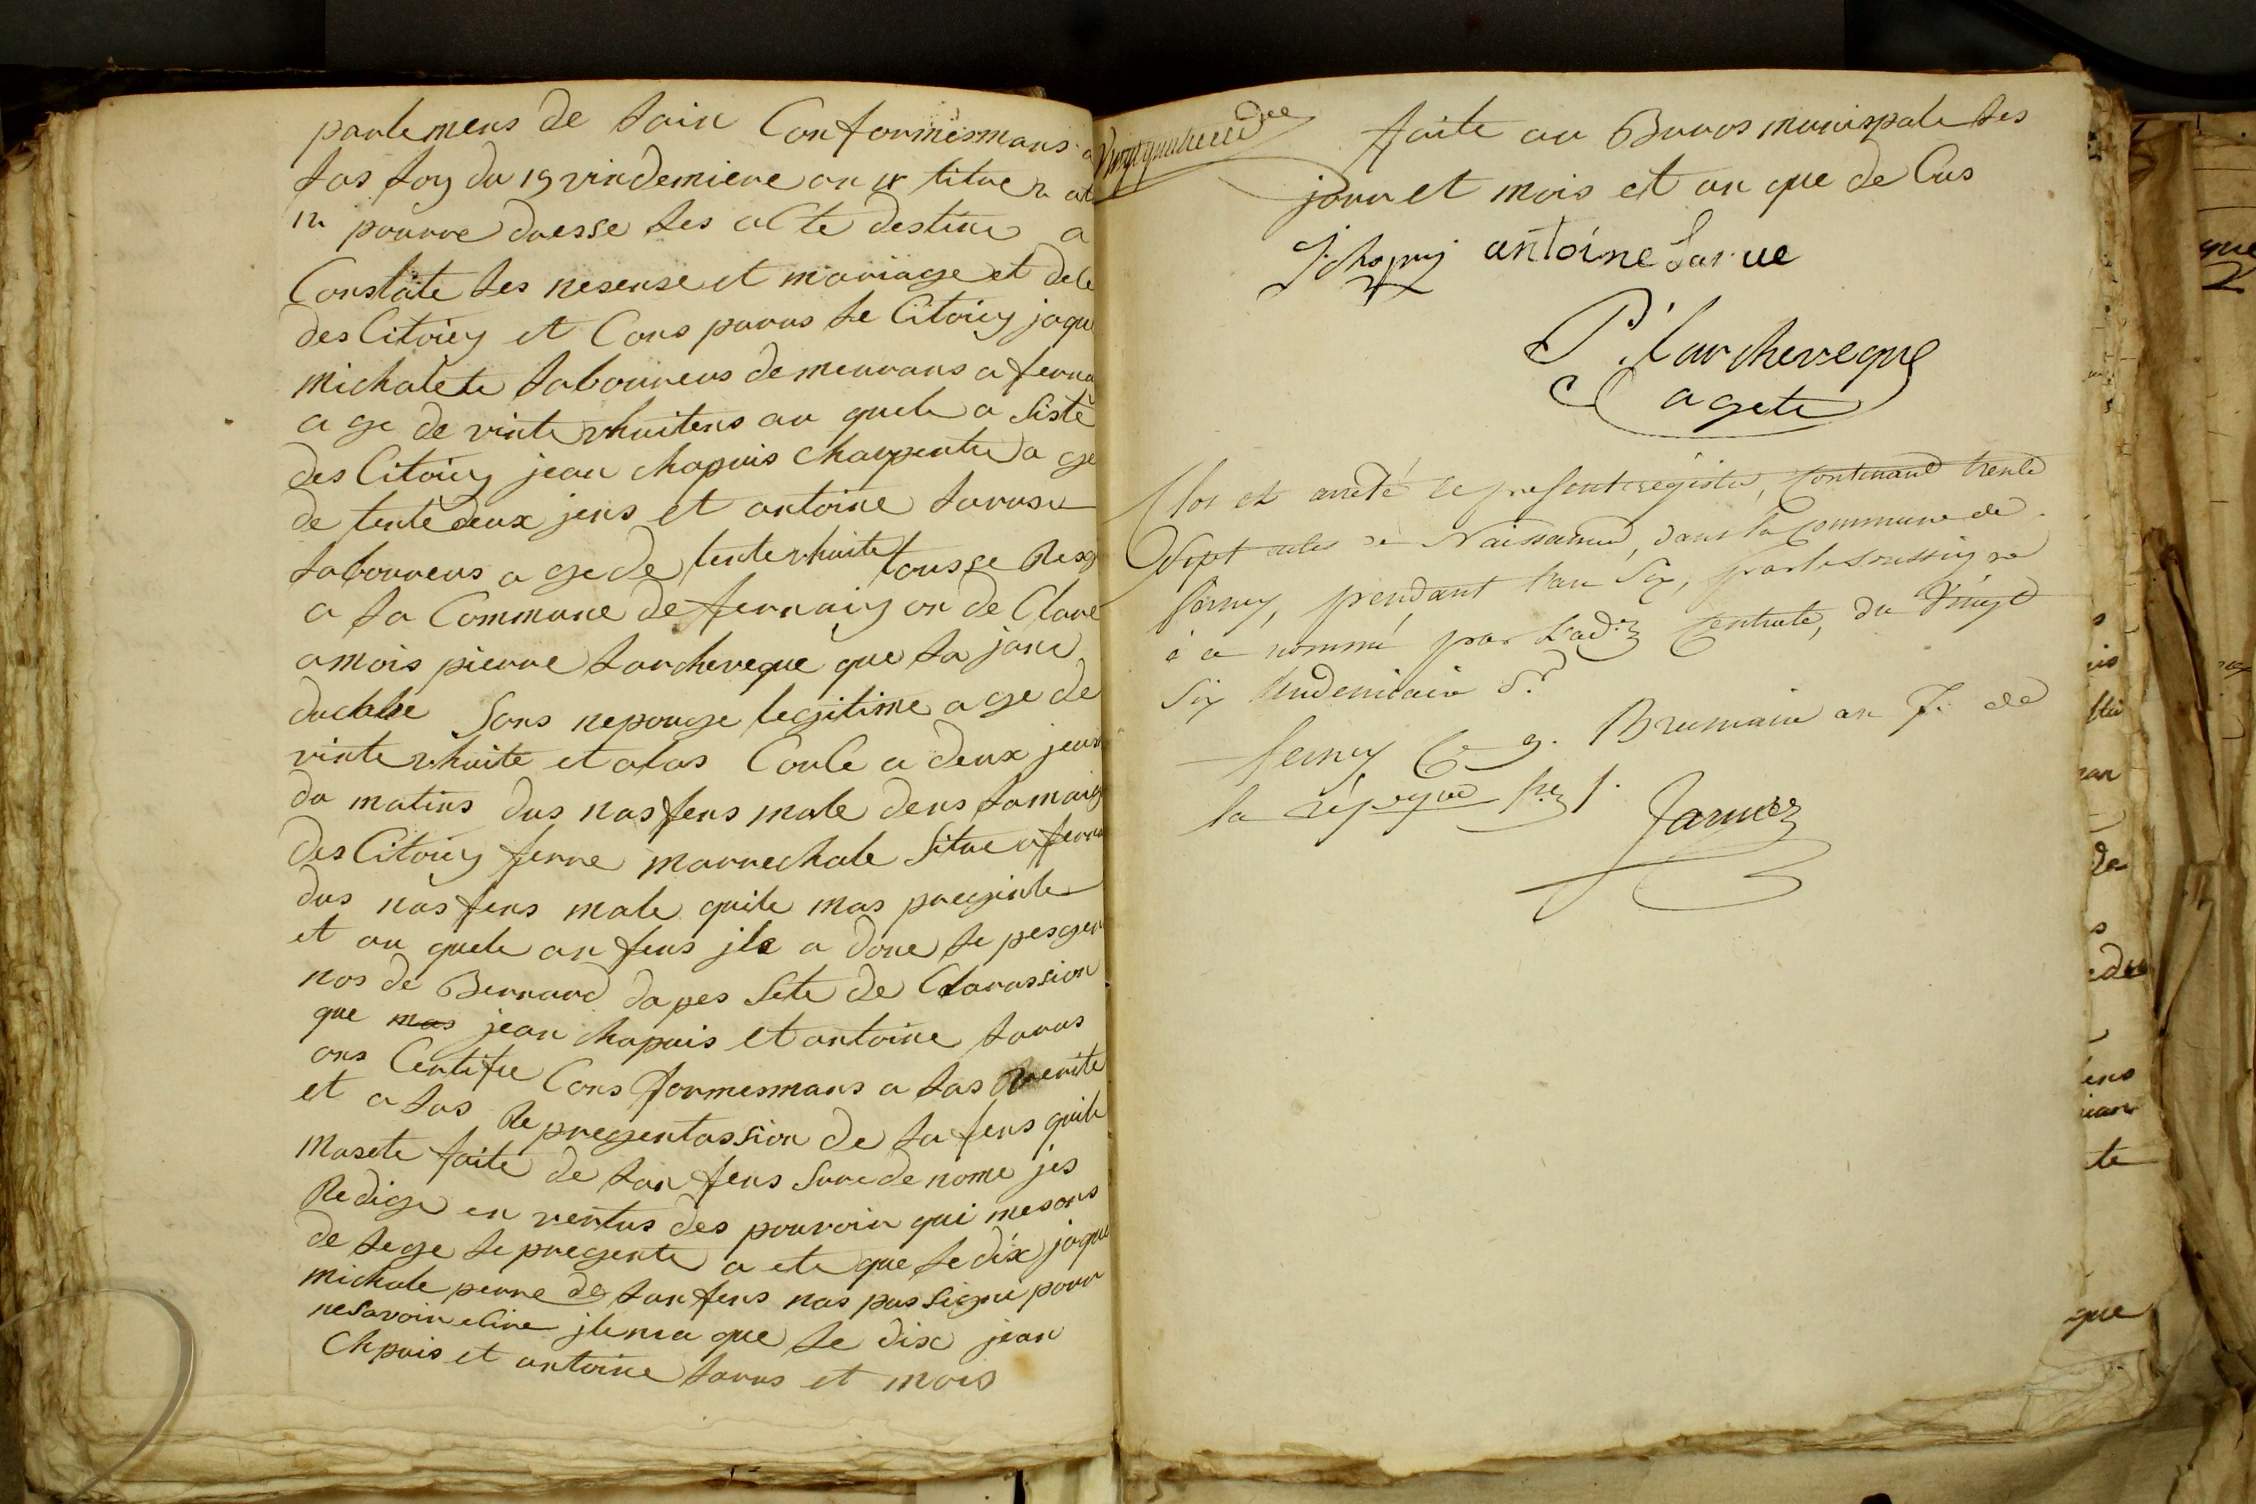 parlemens de Sain Conformesmans a
Las Loy du 19 vindemiere an 4 titre 2 at
12 pourre dresse Les acte destine a
Constate Les nesense et mariage et dele
des Citoiey et Cons parus Le Citoiey jaque
michalete Laboureus demeurans a fernai
age de vinte vhuitens au quele a Siste
des Citoiey jean chapuis charpentie a ge
de tente deux jens et antoine Larase
Laboureus a ge de tente vhuite tousse
a La Commune de fernaiy on de Clare
amois pierre Larcheveque que La jane
duclase Sons nepouge legitime age de
vinte vhuite et alas Coule a deux jeur
du matins dus nas fens male dens Lamaig
des Citoiey ferre marrechale Situe a ferna
dus nas fens male quile mas pregente
et au quele an fens jls a done Le pesgen
nos de Bernard dapes Sete de Clarassion
que mas jean chapuis et antoine Larus
ons Certifie Cons formesmans a Las verite
et a Las Repregentassion de La fens quile
masete faite de Lan fens Surede nome jes
Redige en vertus des pouvoir qui mesons
de Lege Le pregente a ete que Le dix jaque
michale perre de Lan fens nas pas signe pour
nesavoir eCire jlena que Le dix jean
Chpuis et antoine Larus et mois
faite au Buros munispale Les
jour et mois et an que de Cus
j chapuy antoine Larue
P. Larcheveque
agete
Clos et arreté le present registre, contenant trente
Sept actes de Naissance, dans la Commune de
ferney, pendant l'an Six, par le soussigné
à ce nommé par L'ad.on Centrale, du Vingt
Six Vendemiaire d.r
ferney Ce 9. Brumaire an 7. de
la répque